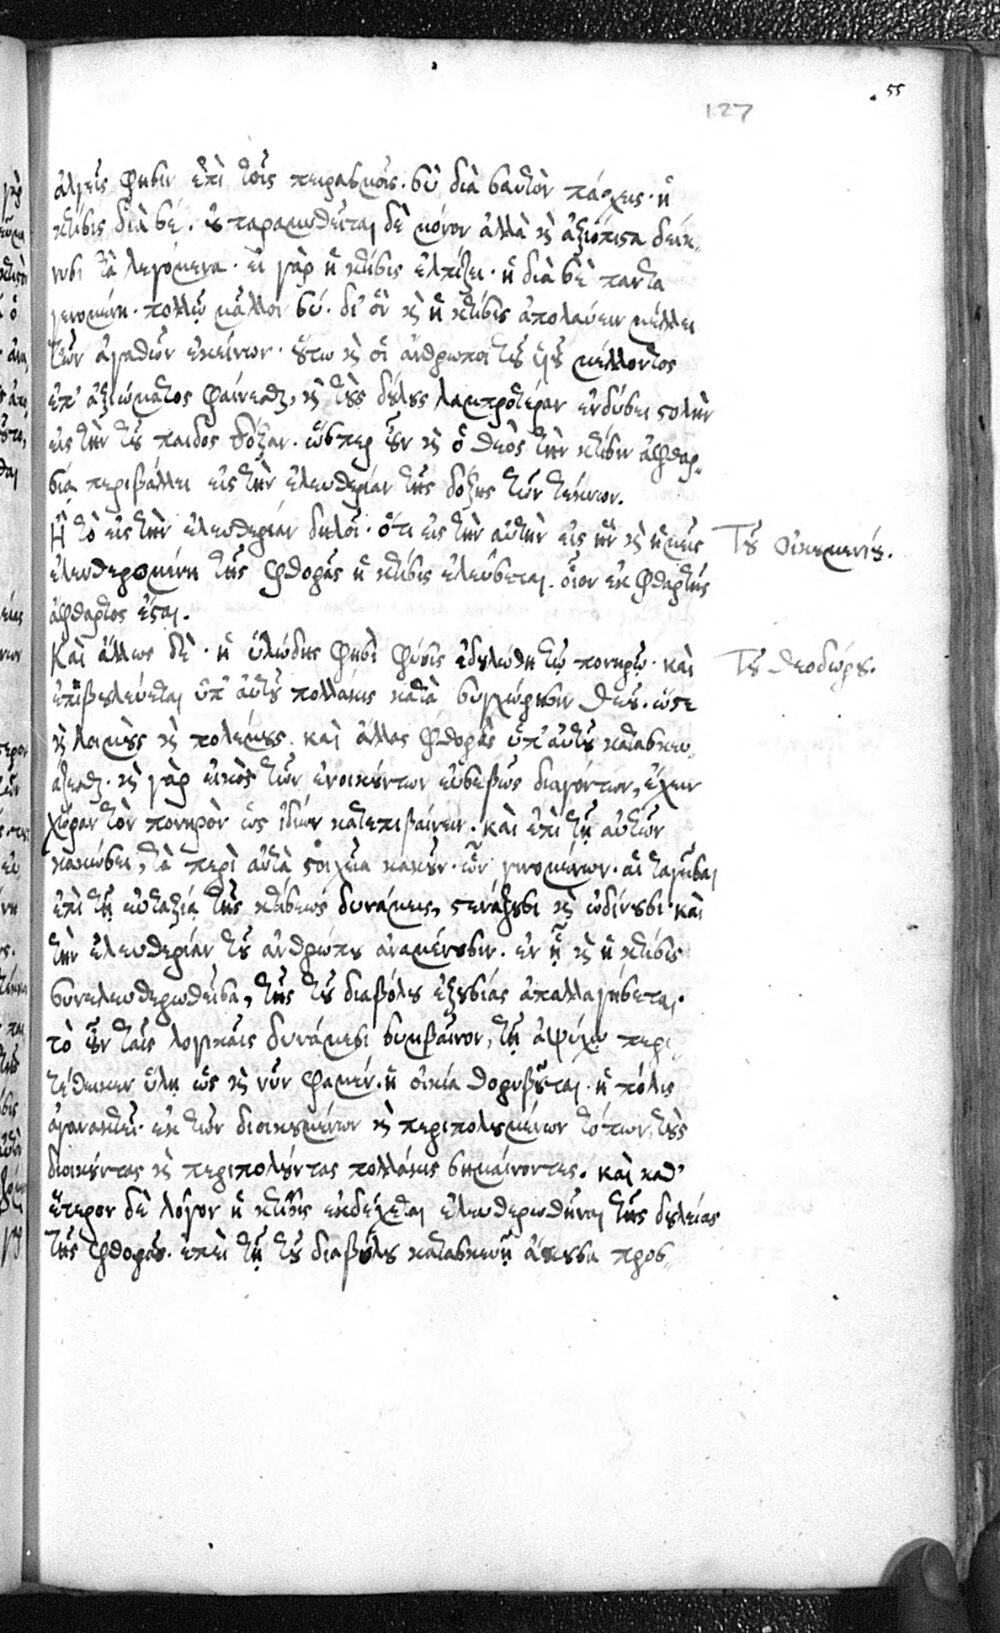 55
127
ἀλγεῖς φησιν ἐπὶ τοῖς πειρασμοῖς. σὺ διὰ σαυτὸν πάσχεις. ἡ
κτίσις διὰ σέ. οὐ παραμυθεῖται δὲ μόνον ἀλλὰ καὶ ἀξιόπιστα δείκ-
νυσι τὰ λεγόμενα. εἰ γὰρ ἡ κτίσις ἐλπίζει. ἡ διὰ σὲ παντα
γενομένη. πολλῷ μᾶλλον σύ. δι' ὃν καὶ ἡ κτίσις ἀπολαύειν μέλλει
τῶν ἀγαθῶν ἐκείνων. οὕτω καὶ οἱ ἄνθρωποι τοῦ υἱοῦ μέλλοντος
ἐπ' ἀξιώματος φαίνεσθαι, καὶ τοὺς δούλους λαμπροτέραν ἐνδύουσι στολὴν
εἰς τὴν τοῦ παιδος δόξαν. ὥσπερ οὖν καὶ ὁ θεὸς τὴν κτίσιν ἀφθαρ-
σία περιβάλλει εἰς τὴν ἐλευθερίαν τῆς δόξης τῶν τέκνων.
Ἢ τὸ εἰς τὴν ἐλευθερίαν δηλοῖ. ὅτι εἰς τὴν αὐτὴν εἰς ἣν καὶ ἡμεῖς
Τοῦ Οἰκουμενίου.
ἐλευθερομένη τῆς φθορᾶς ἡ κτίσις ἐλεύσεται. οἷον ἐκ φθαρτῆς
ἄφθαρτος ἔσται.
Καὶ ἄλλως δὲ. ἡ ὑλώδης φησὶ φύσις ἐδουλώθη τῷ πονηρῷ. καὶ
Τοῦ Θεοδώρου.
ἐπιβουλεύεται ὑπ' αὐτοῦ πολλάκις κατὰ συγχώρησιν θεοῦ. ὥστε
καὶ λοιμοὺς καὶ πολέμους. καὶ ἄλλας φθορὰς ὑπ' αὐτοῦ κατασκευ-
άζεσθαι. καὶ γὰρ εἰκὸς τῶν ἐνοικούντων εὐσεβῶς διαγόντων, ἔχειν
χώραν τὸν πονηρὸν ὡς ἰδίων κατεπιβαίνειν. καὶ ἐπὶ τῇ αὐτῶν
κακώσει, τὰ περὶ αὐτὰ στοιχεῖα κακοῦν. ὧν γινομένων. αἱ ταγεῖσαι
ἐπὶ τῇ εὐταξίᾳ τῆς κτίσεως δυνάμεις, στενάζουσι καὶ ὠδίνουσι καὶ
τὴν ἐλευθερίαν τοῦ ἀνθρώπου ἀναμένουσιν. ἐν ᾗ καὶ ἡ κτίσις
συνελευθερωθεῖσα, τῆς τοῦ διαβόλου ἐξουσίας ἀπαλλαγήσεται.
τὸ οὖν ταῖς λογικαῖς δυνάμεσι συμβαῖνον, τῇ ἀψύχῳ περι
τέθεικεν ὕλῃ ὡς καὶ νῦν φαμέν. ἡ οἰκία θορυβεῖται. ἡ πόλις
ἀγανακτεῖ. ἐκ τῶν διοικουμένων καὶ περιπολουμένων τόπων, τοὺς
διοικοῦντας καὶ περιπολοῦντας πολλάκις σημαίνοντες. καὶ καθ'
ἕτερον δὲ λόγον ἡ κτίσις ἐκδέχεται ἐλευθερωθῆναι τῆς δουλείας
τῆς φθορᾶς. ἐπεὶ τῇ τοῦ διαβόλου κατασκευῇ ἄκουσα προσ-